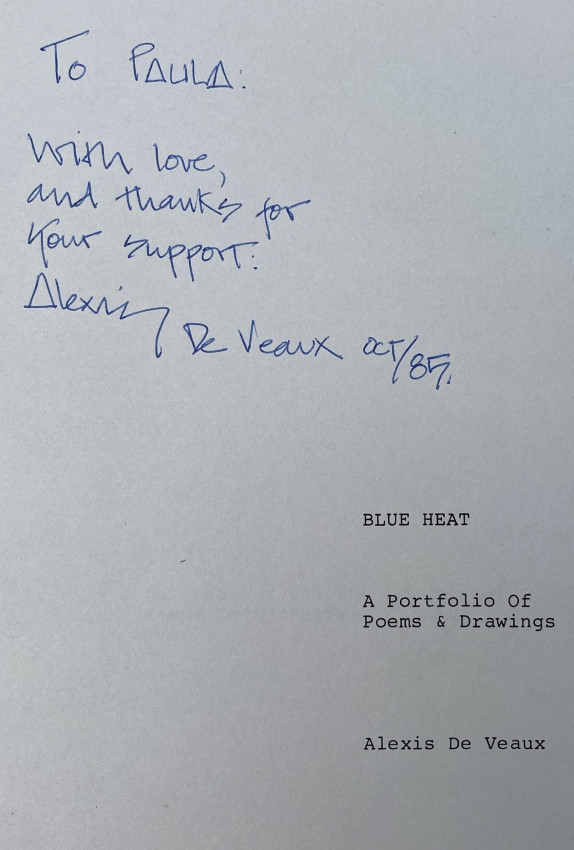 To PAULA:
With love,
and thanks for
Your support:
Alexis
De Veaux OCT/85.
BLUE HEAT
A Portfolio Of
Poems & Drawings
Alexis De Veaux